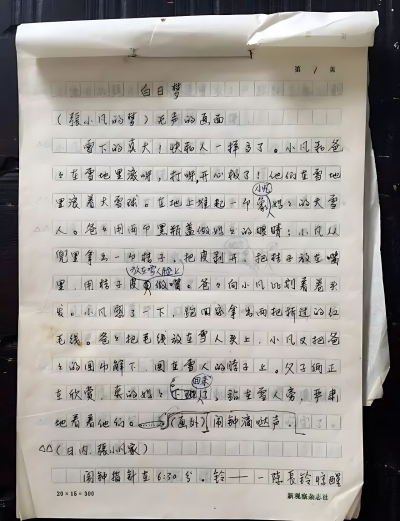 第 1 页
白日梦
(張小凡的梦)无声的画面
雪下的真大!快和人一样高了。小凡和爸
々在雪地里滚呀,打呀,开心极了!他们在雪地
里滚着大雪球。在地上堆起一个 胖々的大雪
人。爸々用两个黑瓶盖做她的眼睛;小凡从
兜里拿出一个桔子,把皮剥开,把桔子放在嘴
放在雪人脸上
里,用桔子皮 做嘴。爸々向小凡比划着卷头
发。小凡 了一下,跑回家拿出两把拆过的红
毛线。爸々把毛线放在雪人头上,小凡又把爸
々的围巾解下,围在雪人的脖子上。父子俩正
回来
在欣赏,真的妈々 了,站在雪人旁,严肃
地看着他们。(画外)闹钟滴哒声。
△△(日内,張小凡家)
闹钟指针在6:30分。铃——一陈長铃惊醒
20×15=300
新观察杂志社